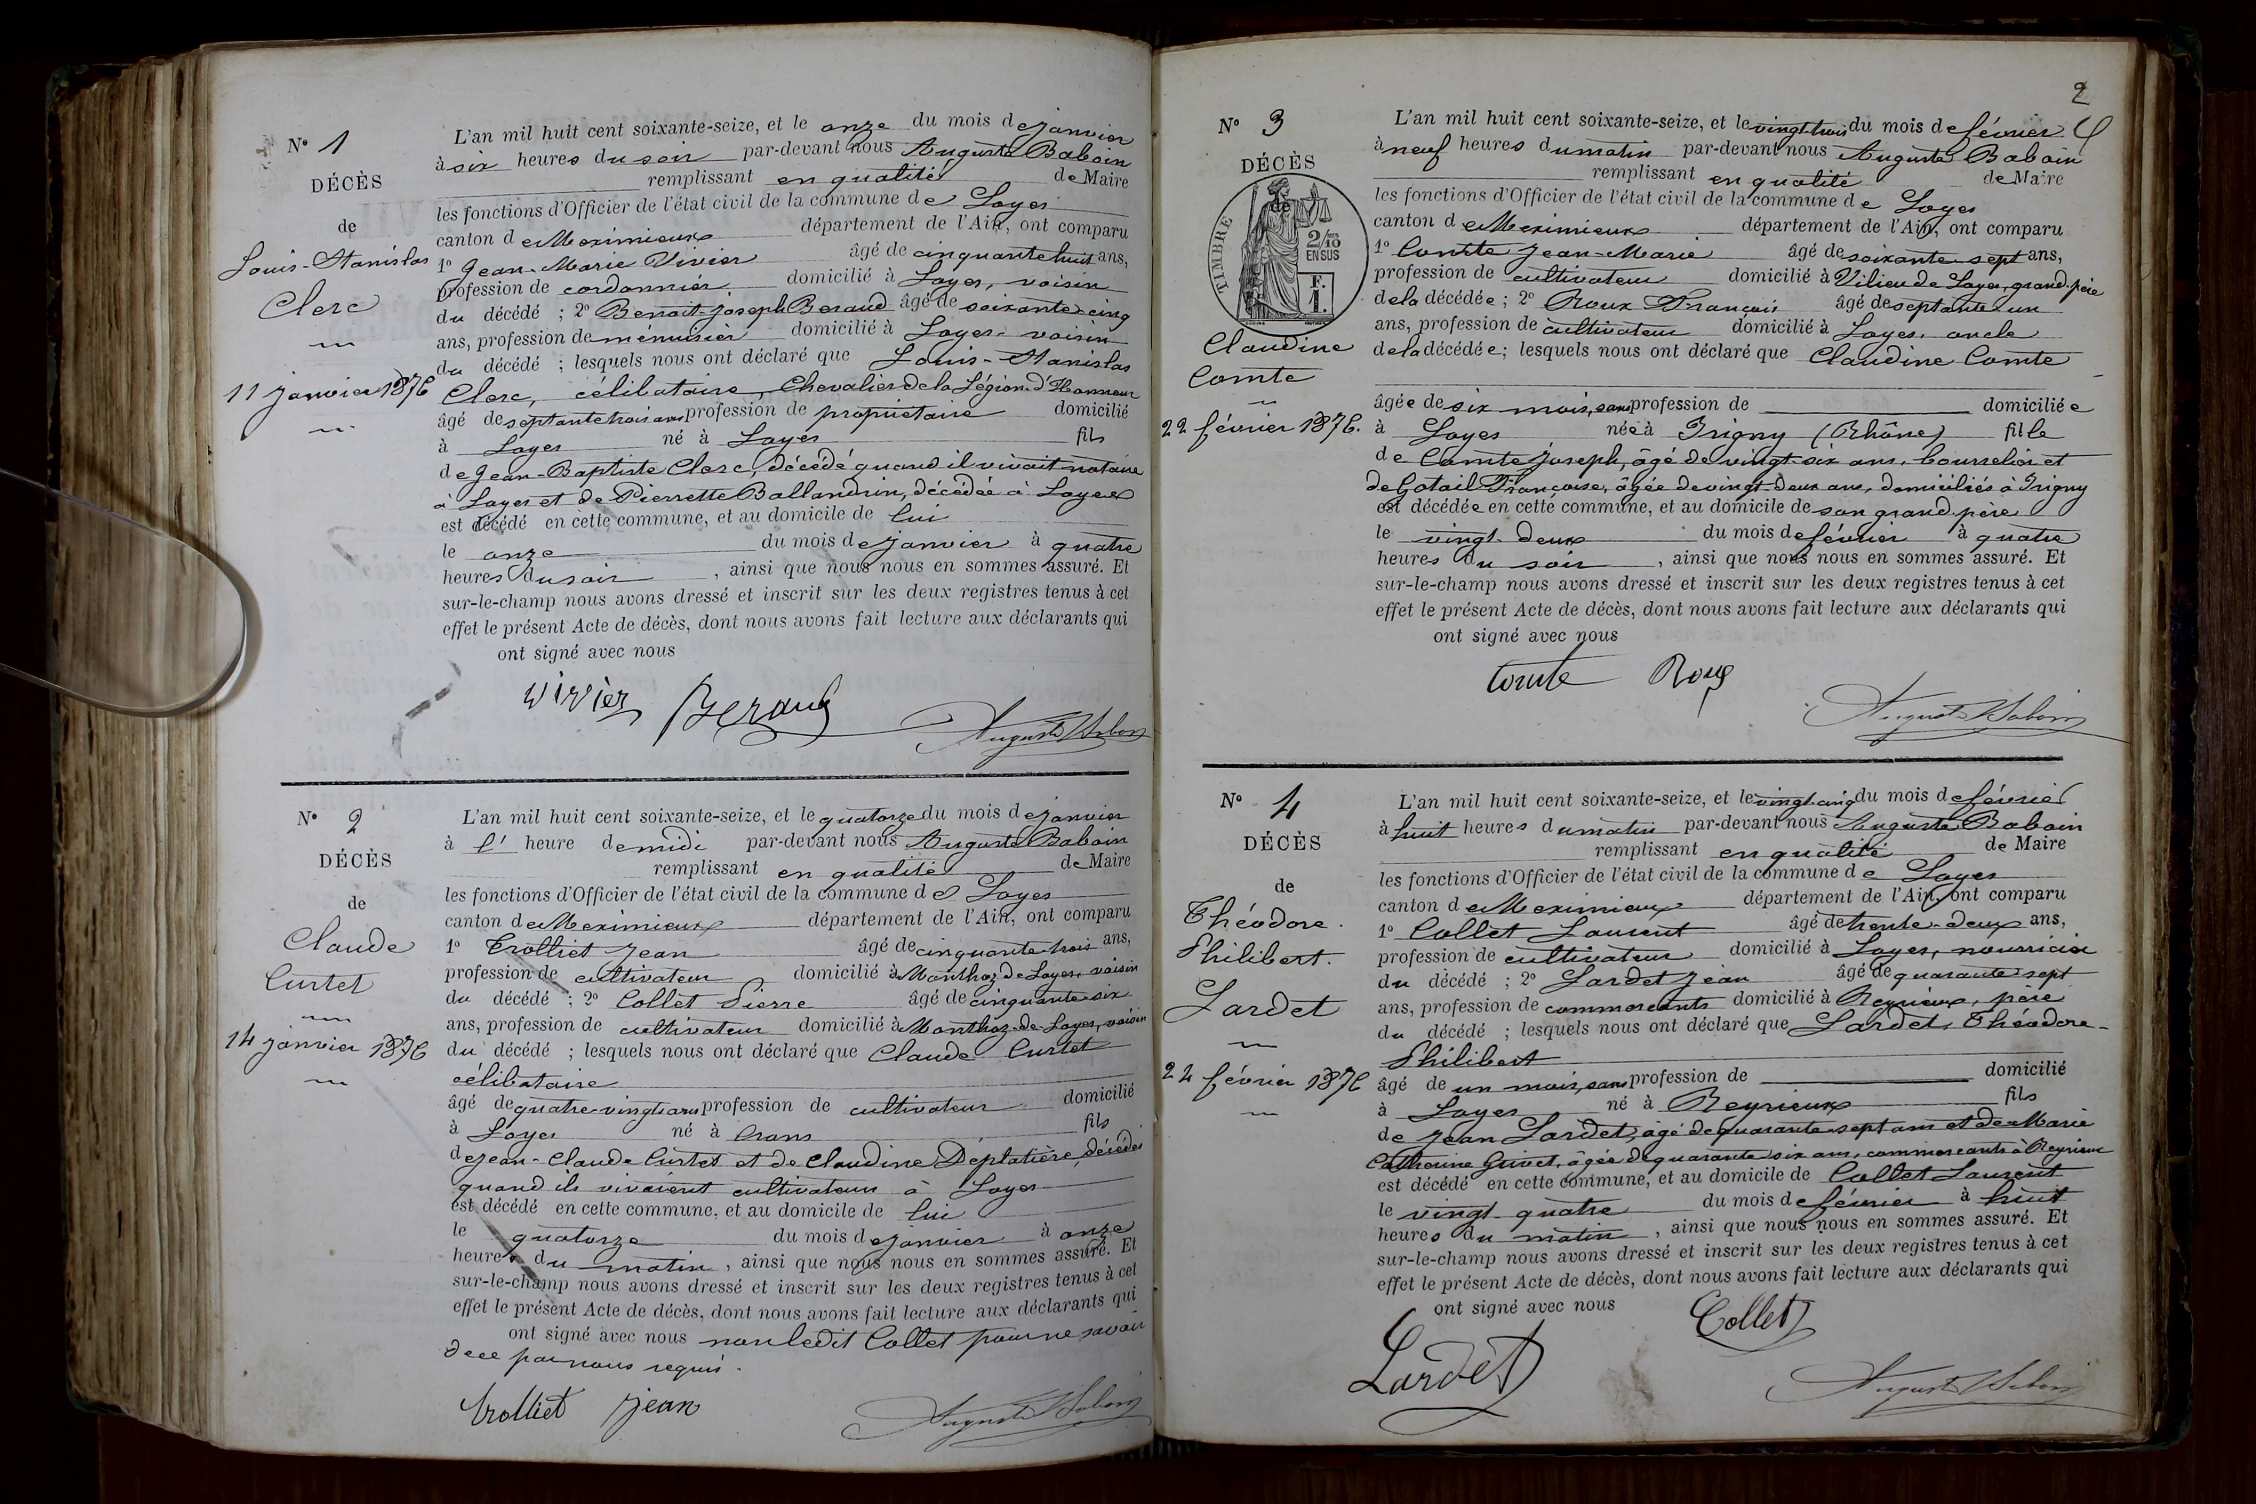 N° 1
DÉCÈS
de
Louis-Stanislas
Clerc
11 janvier 1876
L'an mil huit cent soixante-seize, et le onze du mois de janvier
à six heures du soir par-devant nous Auguste Baboin
remplissant en qualité de Maire
les fonctions d'Officier de l'état civil de la commune de Loyes
canton de Meximieux département de l'Ain, ont comparu
1° Jean-Marie Vivier âgé de cinquante huit ans,
profession de cordonnier domicilié à Loyes, voisin
du décédé ; 2° Benoit-Joseph Beraud âgé de soixante-cinq
ans, profession de menuisier domicilié à Loyes, voisin
du décédé ; lesquels nous ont déclaré que Louis-Stanislas
Clerc, célibataire, Chevalier de la Légion d'Honneur
âgé de septante trois ans profession de propriétaire domicilié
à Loyes né à Loyes fils
de Jean-Baptiste Clerc, décédé quand il vivait notaire
à Loyes et de Pierrette Ballandrin, décédée à Loyes
est décédé en cette commune, et au domicile de lui
le onze du mois de janvier à quatre
heures du soir, ainsi que nous nous en sommes assuré. Et
sur-le-champ nous avons dressé et inscrit sur les deux registres tenus à cet
effet le présent Acte de décès, dont nous avons fait lecture aux déclarants qui
ont signé avec nous
Vivier Beraud
Auguste Baboin
N° 2
DÉCÈS
de
Claude
Curtet
14 janvier 1876
L'an mil huit cent soixante-seize, et le quatorze du mois de janvier
à l' heure de midi par-devant nous Auguste Baboin
remplissant en qualité de Maire
les fonctions d'Officier de l'état civil de la commune de Loyes
canton de Meximieux département de l'Ain, ont comparu
1° Trolliet Jean âgé de cinquante-trois ans,
profession de cultivateur domicilié à Monthoz de Loyes, voisin
du décédé ; 2° Collet Pierre âgé de cinquante-six
ans, profession de cultivateur domicilié à Monthoz-de-Loyes, voisin
du décédé ; lesquels nous ont déclaré que Claude Curtet
célibataire
âgé de quatre-vingts ans profession de cultivateur domicilié
à Loyes né à Crans fils
de Jean-Claude Curtet et de Claudine Déplatière, décédés
quand ils vivaient cultivateurs à Loyes
est décédé en cette commune, et au domicile de lui
le quatorze du mois de janvier à onze
heures du matin, ainsi que nous nous en sommes assuré. Et
sur-le-champ nous avons dressé et inscrit sur les deux registres tenus à cet
effet le présent Acte de décès, dont nous avons fait lecture aux déclarants qui
ont signé avec nous non ledit Collet pour ne savoir
de ce par nous requis.
Trolliet Jean
Auguste Baboin
2
N° 3
DÉCÈS
de
TIMBRE
2/10
EN SUS
F.
1.
Claudine
Comte
22 février 1876.
L'an mil huit cent soixante-seize, et le vingt trois du mois de février
à neuf heures du matin par-devant nous Auguste Baboin
remplissant en qualité de Maire
les fonctions d'Officier de l'état civil de la commune de Loyes
canton de Meximieux département de l'Ain, ont comparu
1° Comte Jean-Marie âgé de soixante-sept ans,
profession de cultivateur domicilié à Vilieu de Loyes, grand-père
de la décédée ; 2° Roux François âgé de septante-un
ans, profession de cultivateur domicilié à Loyes, oncle
de la décédée ; lesquels nous ont déclaré que Claudine Comte
âgée de six mois, sans profession de domiciliée
à Loyes née à Irigny (Rhône) fille
de Comte Joseph, âgé de vingt-six ans, bourrelier et
de Gotail Françoise, âgée de vingt-deux ans, domiciliés à Irigny
est décédée en cette commune, et au domicile de son grand-père
le vingt-deux du mois de février à quatre
heures du soir, ainsi que nous nous en sommes assuré. Et
sur-le-champ nous avons dressé et inscrit sur les deux registres tenus à cet
effet le présent Acte de décès, dont nous avons fait lecture aux déclarants qui
ont signé avec nous
Comte Roux
Auguste Baboin
N° 4
DÉCÈS
de
Théodore.
Philibert.
Lardet
24 février 1876
L'an mil huit cent soixante-seize, et le vingt-cinq du mois de février
à huit heures du matin par-devant nous Auguste Baboin
remplissant en qualité de Maire
les fonctions d'Officier de l'état civil de la commune de Loyes
canton de Meximieux département de l'Ain, ont comparu
1° Collet Laurent âgé de trente-deux ans,
profession de cultivateur domicilié à Loyes, nourricier
du décédé ; 2° Lardet Jean âgé de quarante sept
ans, profession de commercants domicilié à Reyrieux, père
du décédé ; lesquels nous ont déclaré que Lardet, Théodore-
Philibert
âgé de un mois, sans profession de domicilié
à Loyes né à Reyrieux fils
de Jean Lardet, âgé de quarante-sept ans et de Marie
Catherine Grivet, âgée de quarante six ans, commercants à Reyrieux
est décédé en cette commune, et au domicile de Collet Laurent
le vingt-quatre du mois de février à huit
heures du matin, ainsi que nous nous en sommes assuré. Et
sur-le-champ nous avons dressé et inscrit sur les deux registres tenus à cet
effet le présent Acte de décès, dont nous avons fait lecture aux déclarants qui
ont signé avec nous
Collet
Lardet
Auguste Baboin